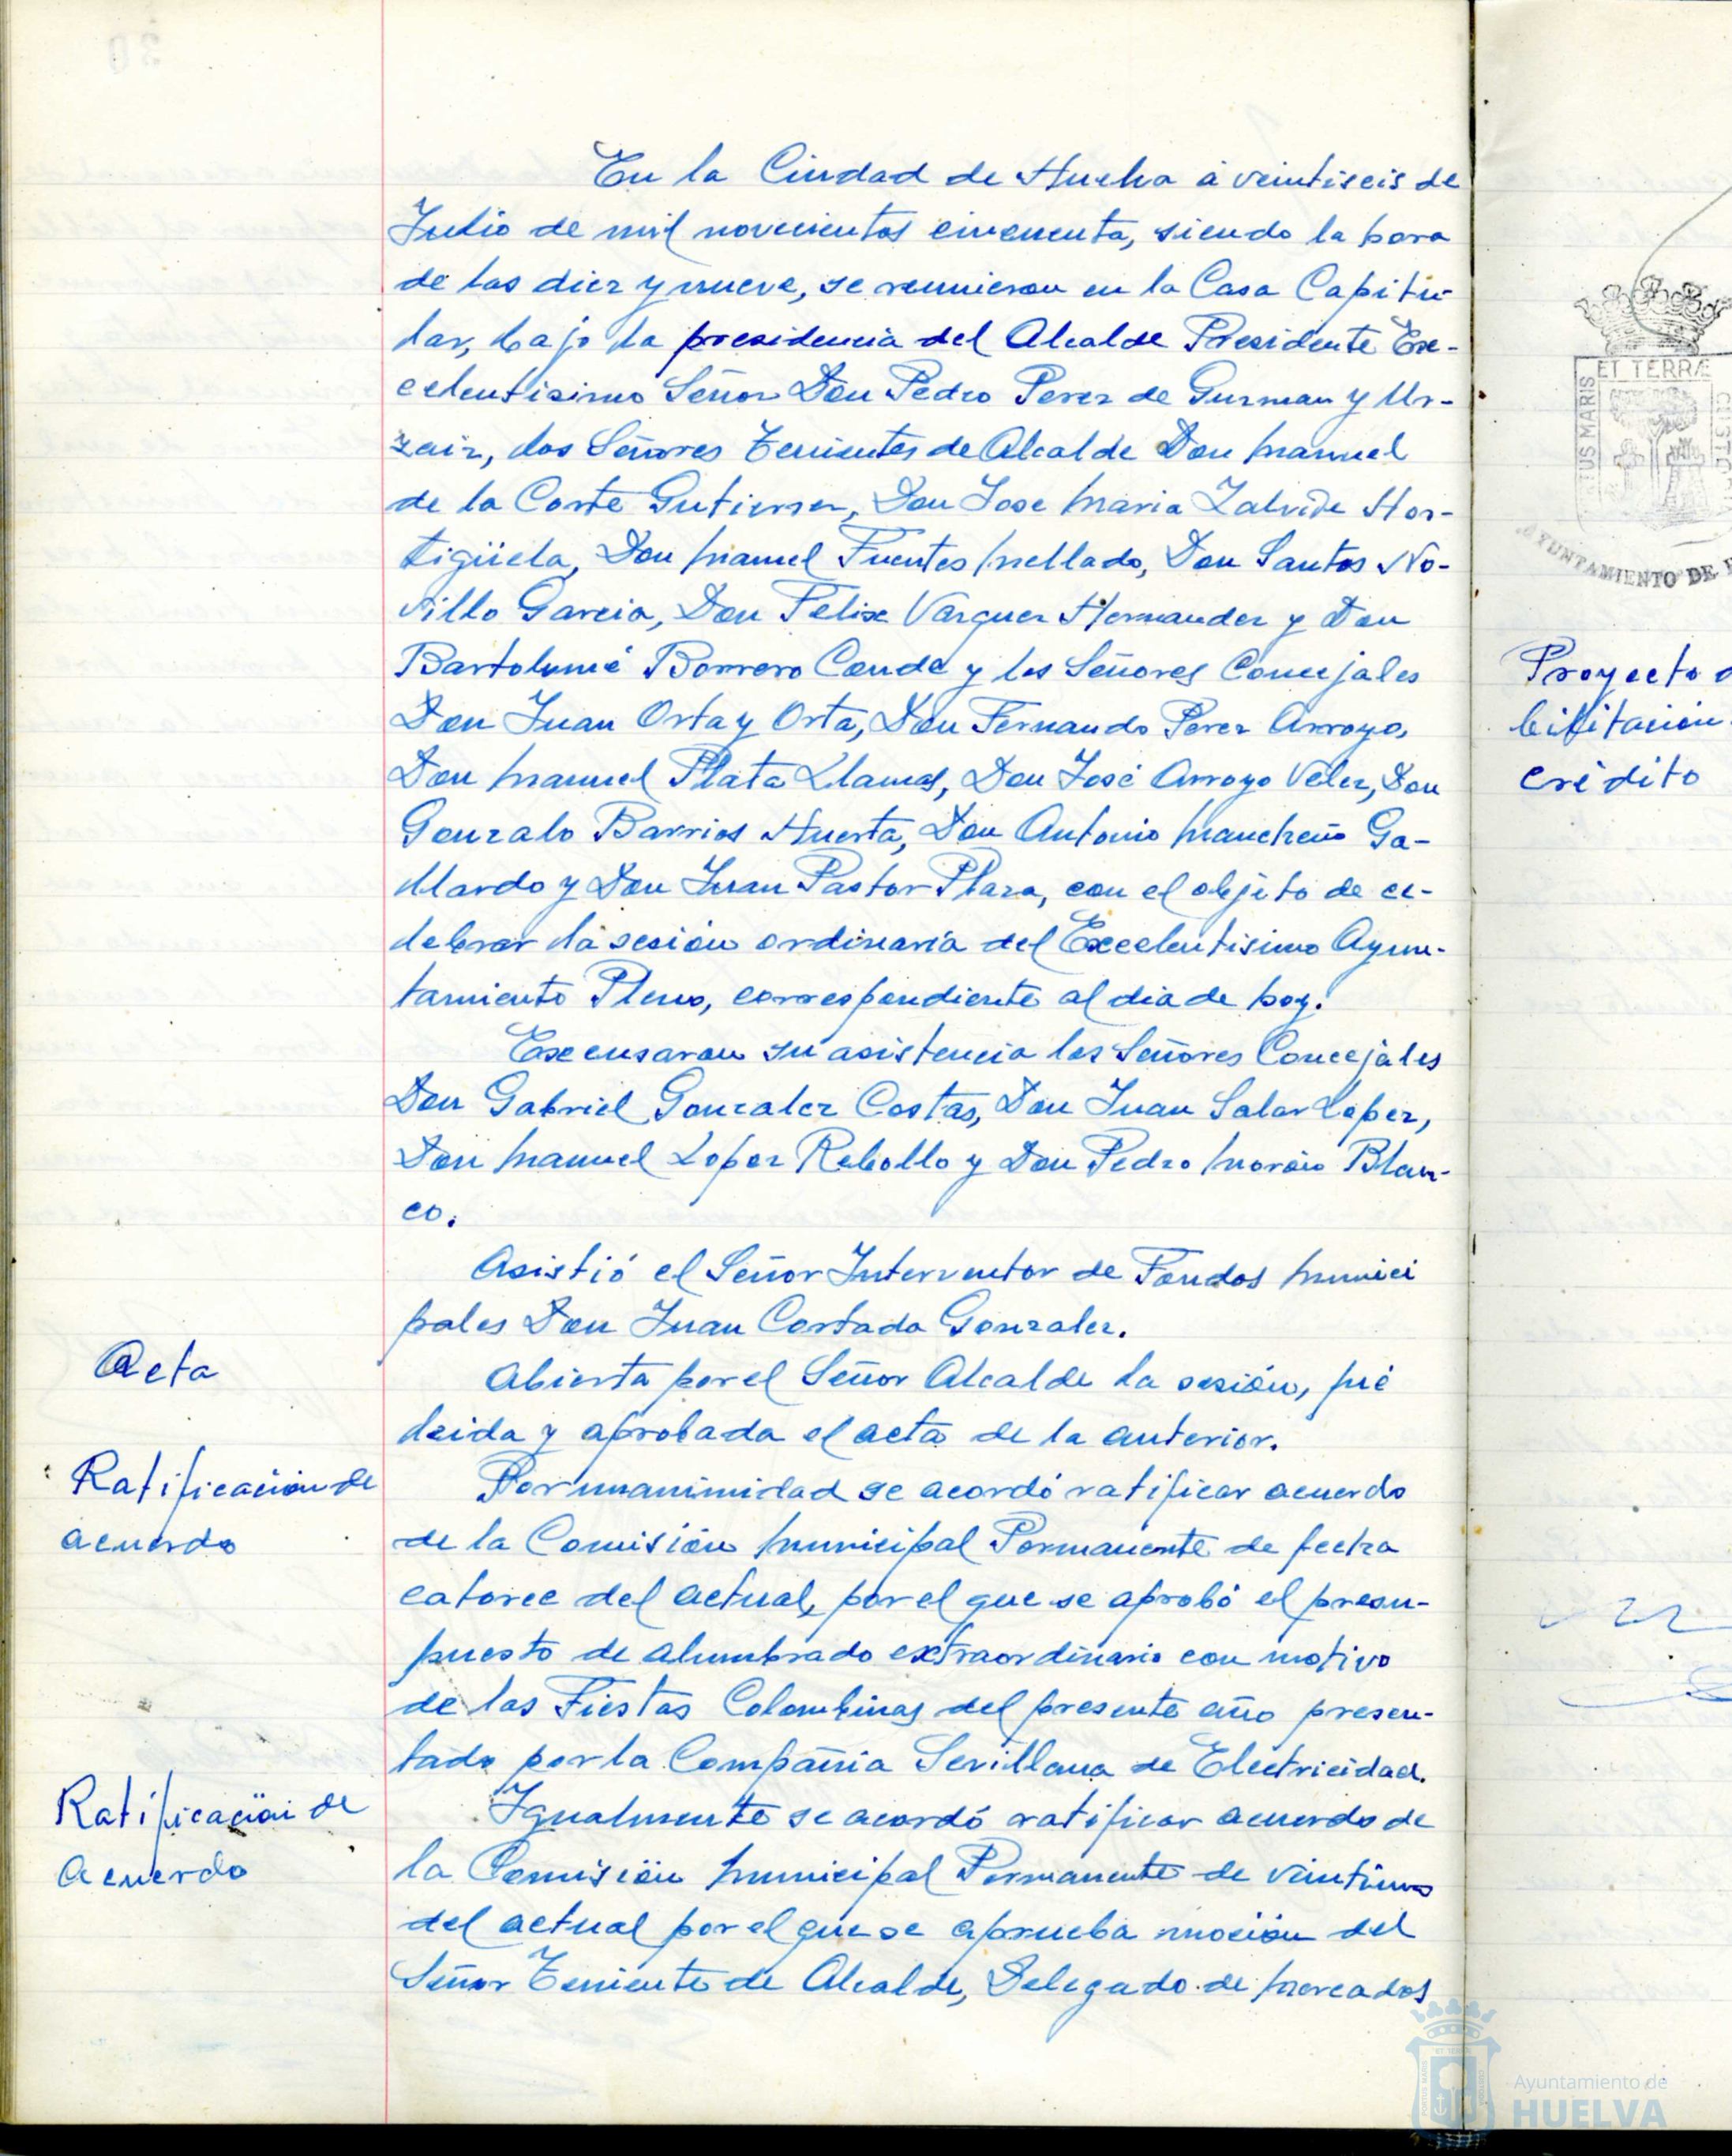 En la Ciudad de Huelva a veintiseis de
Julio de mil novecientos cincuenta, siendo la hora
de las diez y nueve, se reunieron en la Casa Capitu-
lar, bajo la presidencia del Alcalde Presidente Ex-
celentisimo Señor Don Pedro Perez de Guzman y Ur-
zaiz, los Señores Tenientes de Alcalde Don Manuel
de la Corte Gutierrez, Don Jose Maria Zalvide Hor-
tigüela, Don Manuel Fuentes Mellado, Don Santos No-
villo Garcia, Don Felix Vazquez Hernandez y Don
Bartolomé Borrero Conde y los Señores Concejales
Don Juan Orta y Orta, Don Fernando Perez Arroyo,
Don Manuel Plata Llamas, Don José Arroyo Velez, Don
Gonzalo Barrios Huerta, Don Antonio Mancheño Ga-
llardo y Don Juan Pastor Plaza, con el objeto de ce-
lebrar la sesión ordinaria del Excelentisimo Ayun-
tamiento Pleno, correspondiente al dia de hoy.
Excusaron su asistencia los Señores Concejales
Don Gabriel Gonzalez Costas, Don Juan Salar Lopez,
Don Manuel Lopez Rebollo y Don Pedro Morón Blan-
co.
Asistió el Señor Interventor de Fondos Munici
pales Don Juan Cortada Gonzalez.
Acta
Abierta por el Señor Alcalde la sesión, fué
leida y aprobada el acta de la anterior.
Ratificación de
acuerdo
Por unanimidad se acordó ratificar acuerdo
de la Comisión Municipal Permanente de fecha
catorce del actual, por el que se aprobó el presu-
puesto de alumbrado extraordinario con motivo
de las Fiestas Colombinas del presente año presen-
tado por la Compañia Sevillana de Electricidad.
Ratificación de
acuerdo
Igualmente se acordó ratificar acuerdo de
la Comisión Municipal Permanente de veintiuno
del actual por el que se aprueba moción del
Señor Teniente de Alcalde, Delegado de Mercados
ET TERRÆ
US MARIS
AYUNTAMIENTO DE
Proyecto
bilitación
crédito
Ayuntamiento de
HUELVA